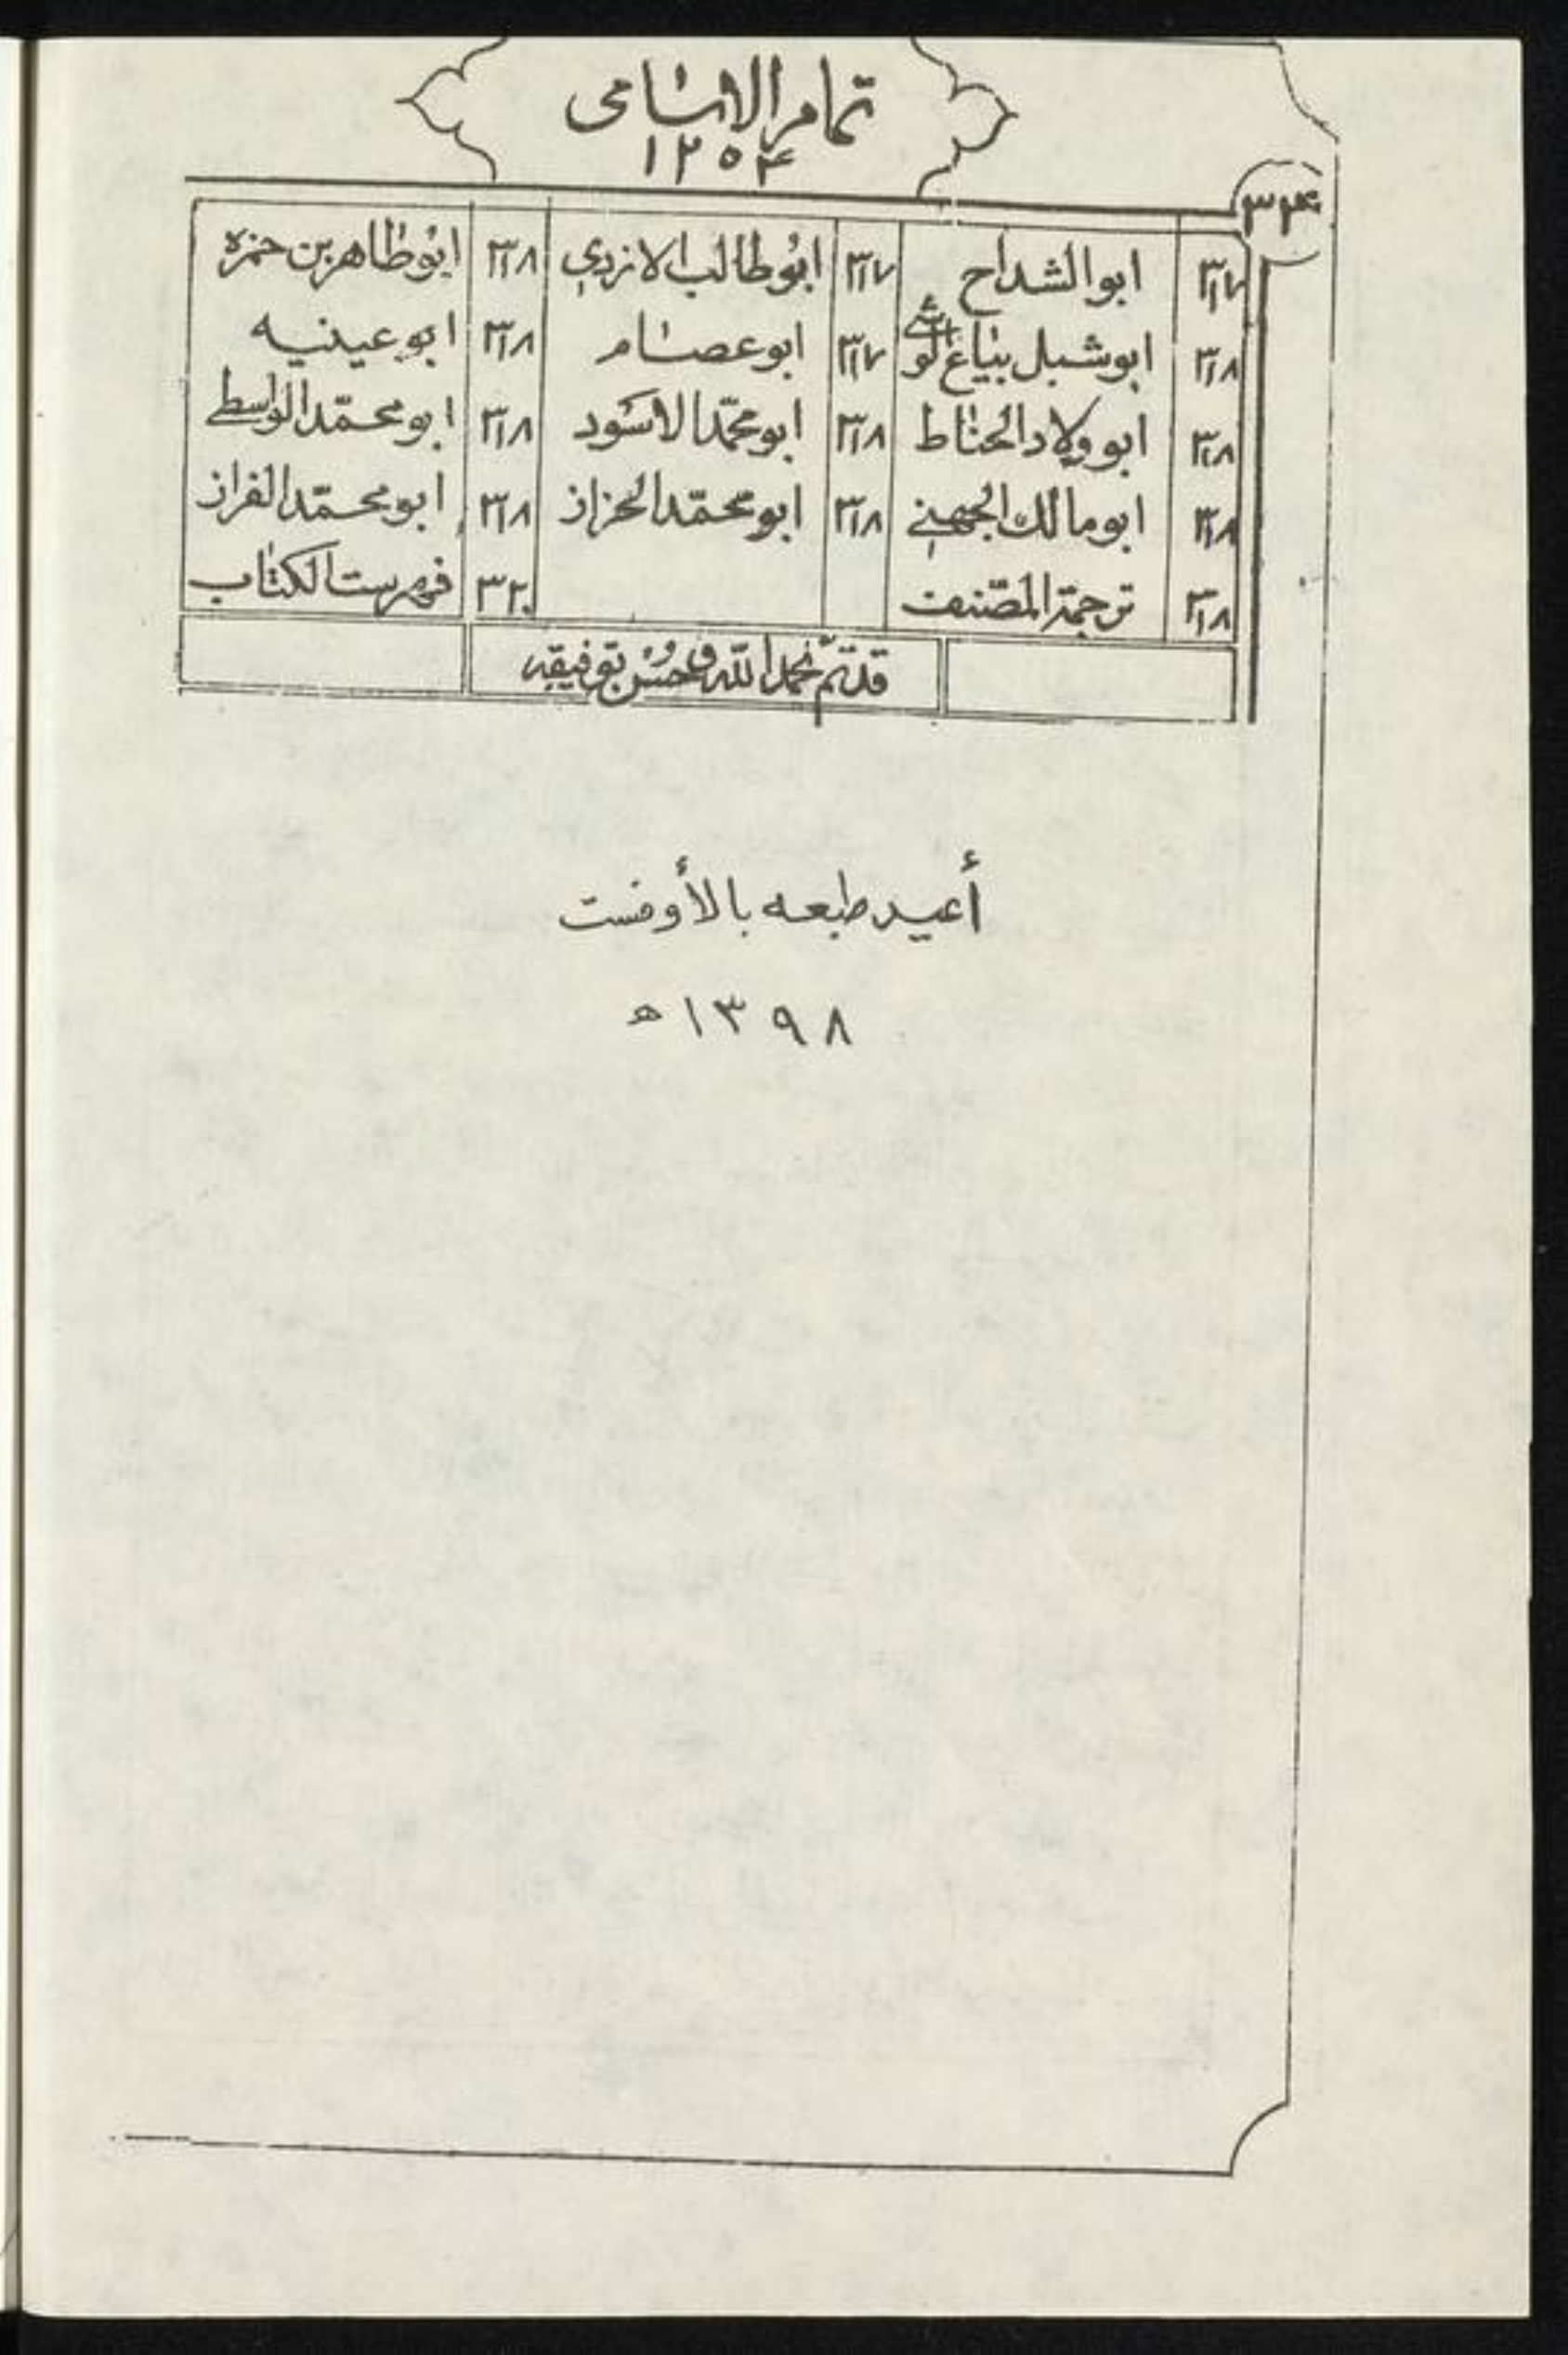 تمام الاسامى
١٢٥۴
٣٣۴
٣١٧ ابو الشداح ٣١٧ ابو طالب الازدي ٣١٨ ابو طاهر بن حمزه
٣١٨ ابو شبل بياع ٣١٧ ابو عصام ٣١٨ ابو عينيه
٣١٨ ابو ولاد الحناط ٣١٨ ابو محمّد الاسود ٣١٨ ابو محمّد الواسطي
٣١٨ ابو مالك الجهني ٣١٨ ابو محمّد الخزاز ٣١٨ ابو محمّد الفزاز
٣١٨ ترجمة المصّنف ٣٢٠ فهرست الكتاب
قد تمّ بحمد الله و حسن توفيقه
أعيد طبعه بالأوفست
١٣٩٨ ھ